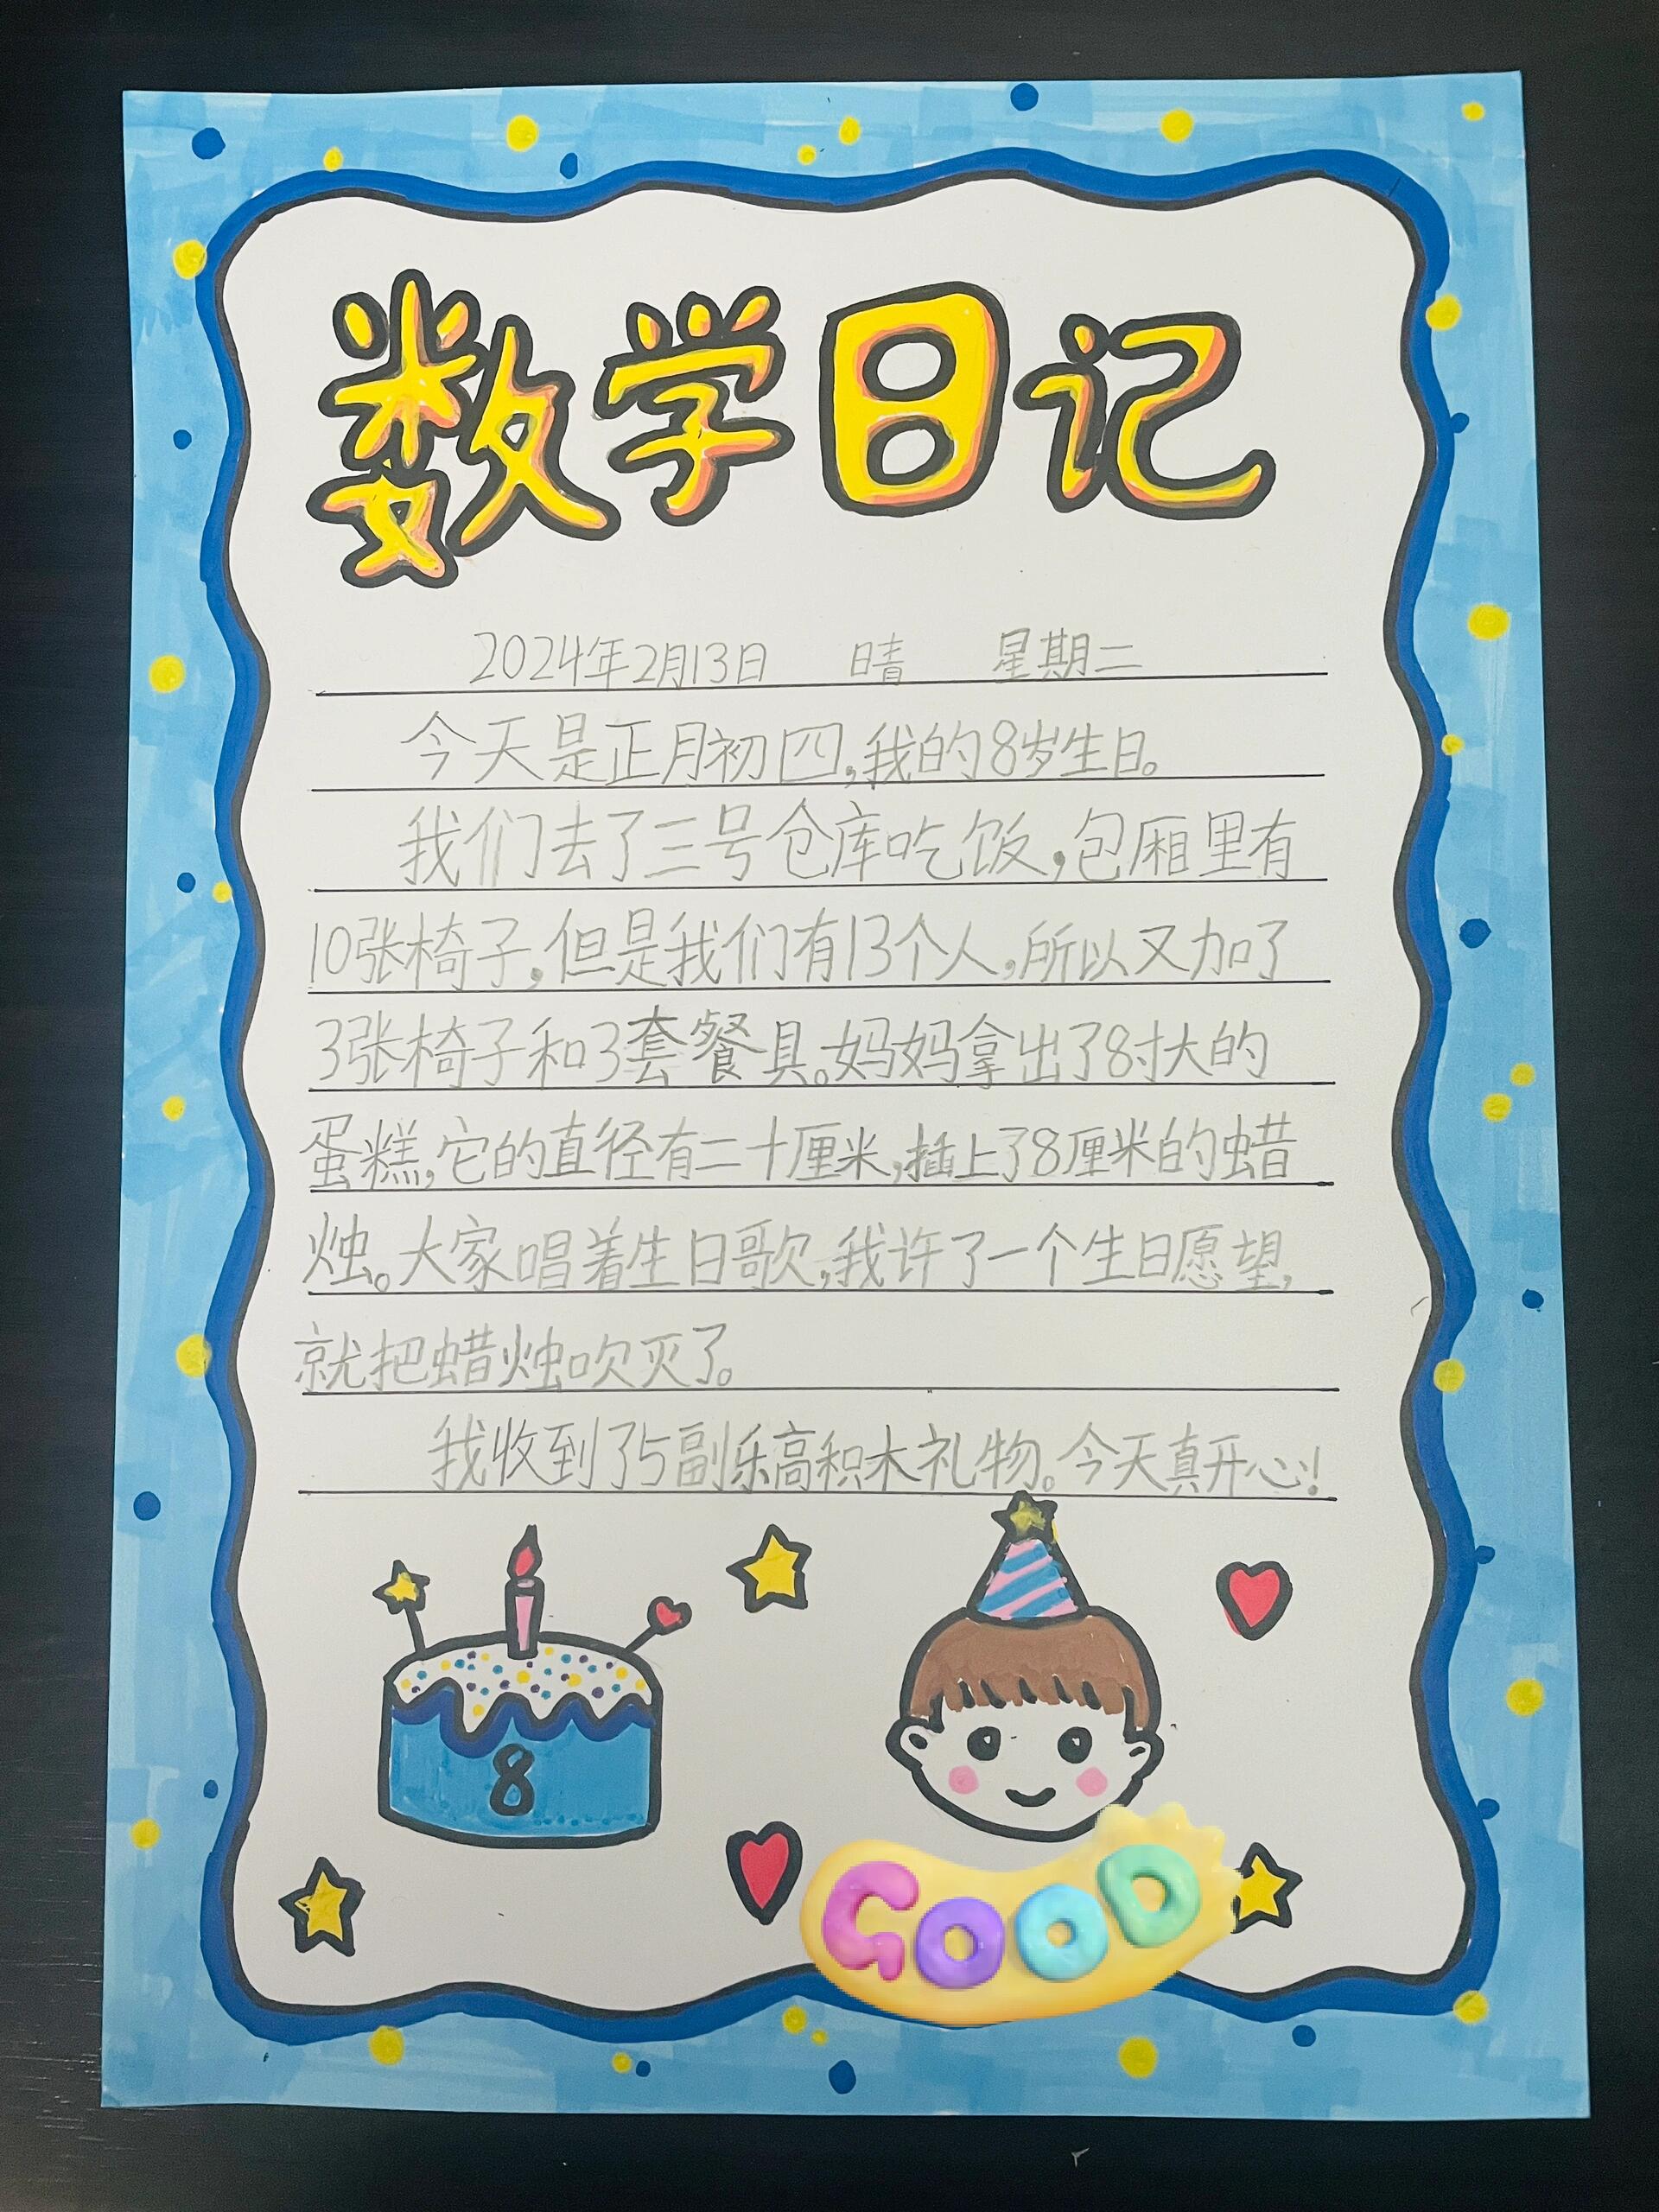 数学日记
2024年2月13日 晴 星期二
今天是正月初四,我的8岁生日。
我们去了三号仓库吃饭,包厢里有
10张椅子,但是我们有13个人,所以又加了
3张椅子和3套餐具。妈妈拿出了8寸大的
蛋糕,它的直径有二十厘米,插上了8厘米的蜡
烛。大家唱着生日歌,我许了一个生日愿望,
就把蜡烛吹灭了。
我收到了5副乐高积木礼物。今天真开心!
8
GOOD